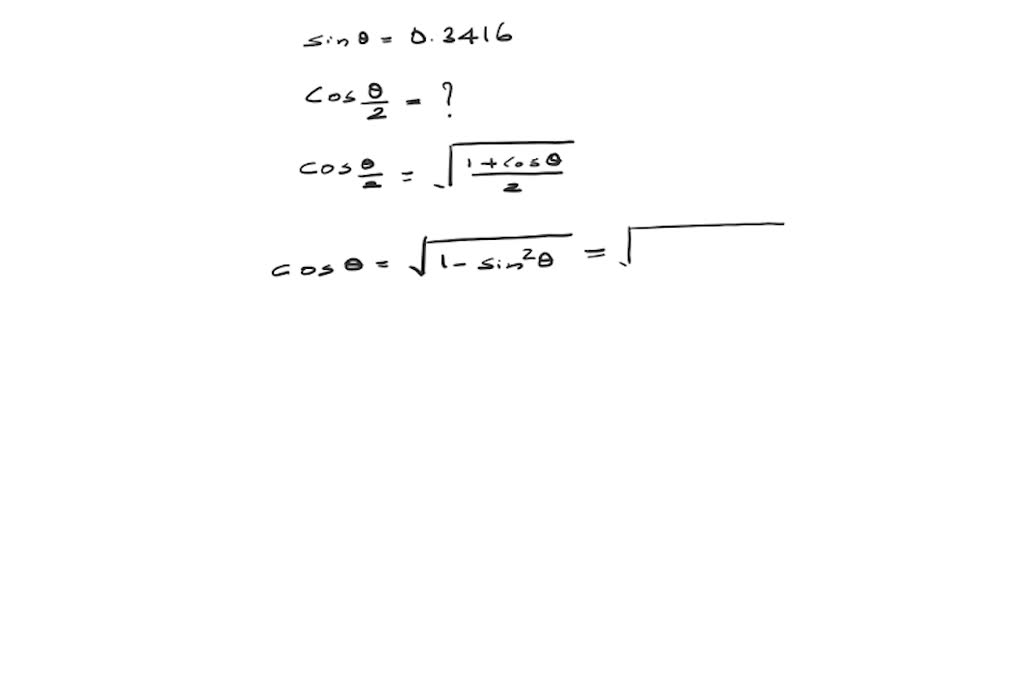 sin θ = 0.3416
cos θ/2 = ?
cos θ/2 = √((1 + cos θ)/2)
cos θ = √(1 - sin²θ) = √